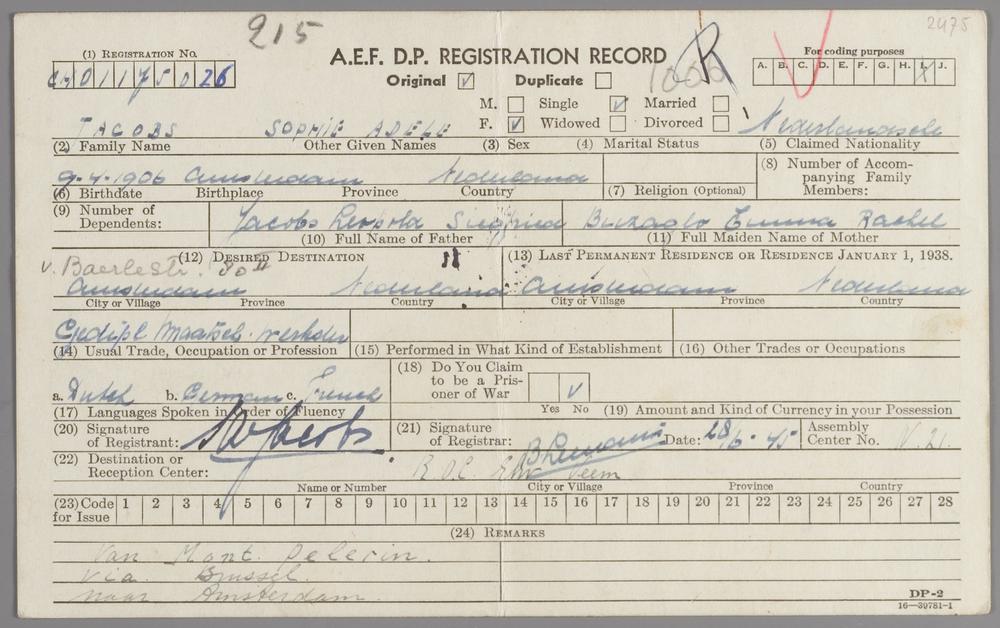 215
2475
(1) REGISTRATION NO.
A.E.F. D.P. REGISTRATION RECORD
R
For coding purposes
Original ✓ Duplicate
1006
A. B. C. D. E. F. G. H. I. J.
M. Single ✓ Married
F. ✓ Widowed Divorced
JACOBS SOPHIE ADELE Nederlandsche
(2) Family Name Other Given Names (3) Sex (4) Marital Status (5) Claimed Nationality
9-4-1906 Amsterdam Nederland
(6) Birthdate Birthplace Province Country (7) Religion (Optional)
(8) Number of Accompanying Family Members:
(9) Number of Dependents:
Jacobs Leopold Siegfried Buzaglo Emma Rachel
(10) Full Name of Father (11) Full Maiden Name of Mother
(12) DESIRED DESTINATION (13) LAST PERMANENT RESIDENCE OR RESIDENCE JANUARY 1, 1938.
v. Baerlestr. 80 II
Amsterdam Nederland Amsterdam Nederland
City or Village Province Country City or Village Province Country
Gedipl Maatsch. werkster
(14) Usual Trade, Occupation or Profession (15) Performed in What Kind of Establishment (16) Other Trades or Occupations
(18) Do You Claim to be a Prisoner of War
a. Dutch b. German c. French v
Yes No
(17) Languages Spoken in Order of Fluency (19) Amount and Kind of Currency in your Possession
(20) Signature of Registrant: Jacobs
(21) Signature of Registrar:
Date: 28/6-45
Assembly Center No. N.21.
(22) Destination or Reception Center:
Name or Number City or Village Province Country
(23) Code for Issue 1 2 3 4 5 6 7 8 9 10 11 12 13 14 15 16 17 18 19 20 21 22 23 24 25 26 27 28
(24) REMARKS
Van Mont. Pelerin.
via Brussel.
naar Amsterdam.
DP-2
16-39781-1